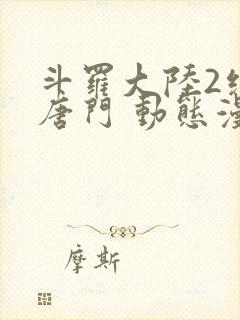 斗羅大陸2
唐門 動態
摩斯